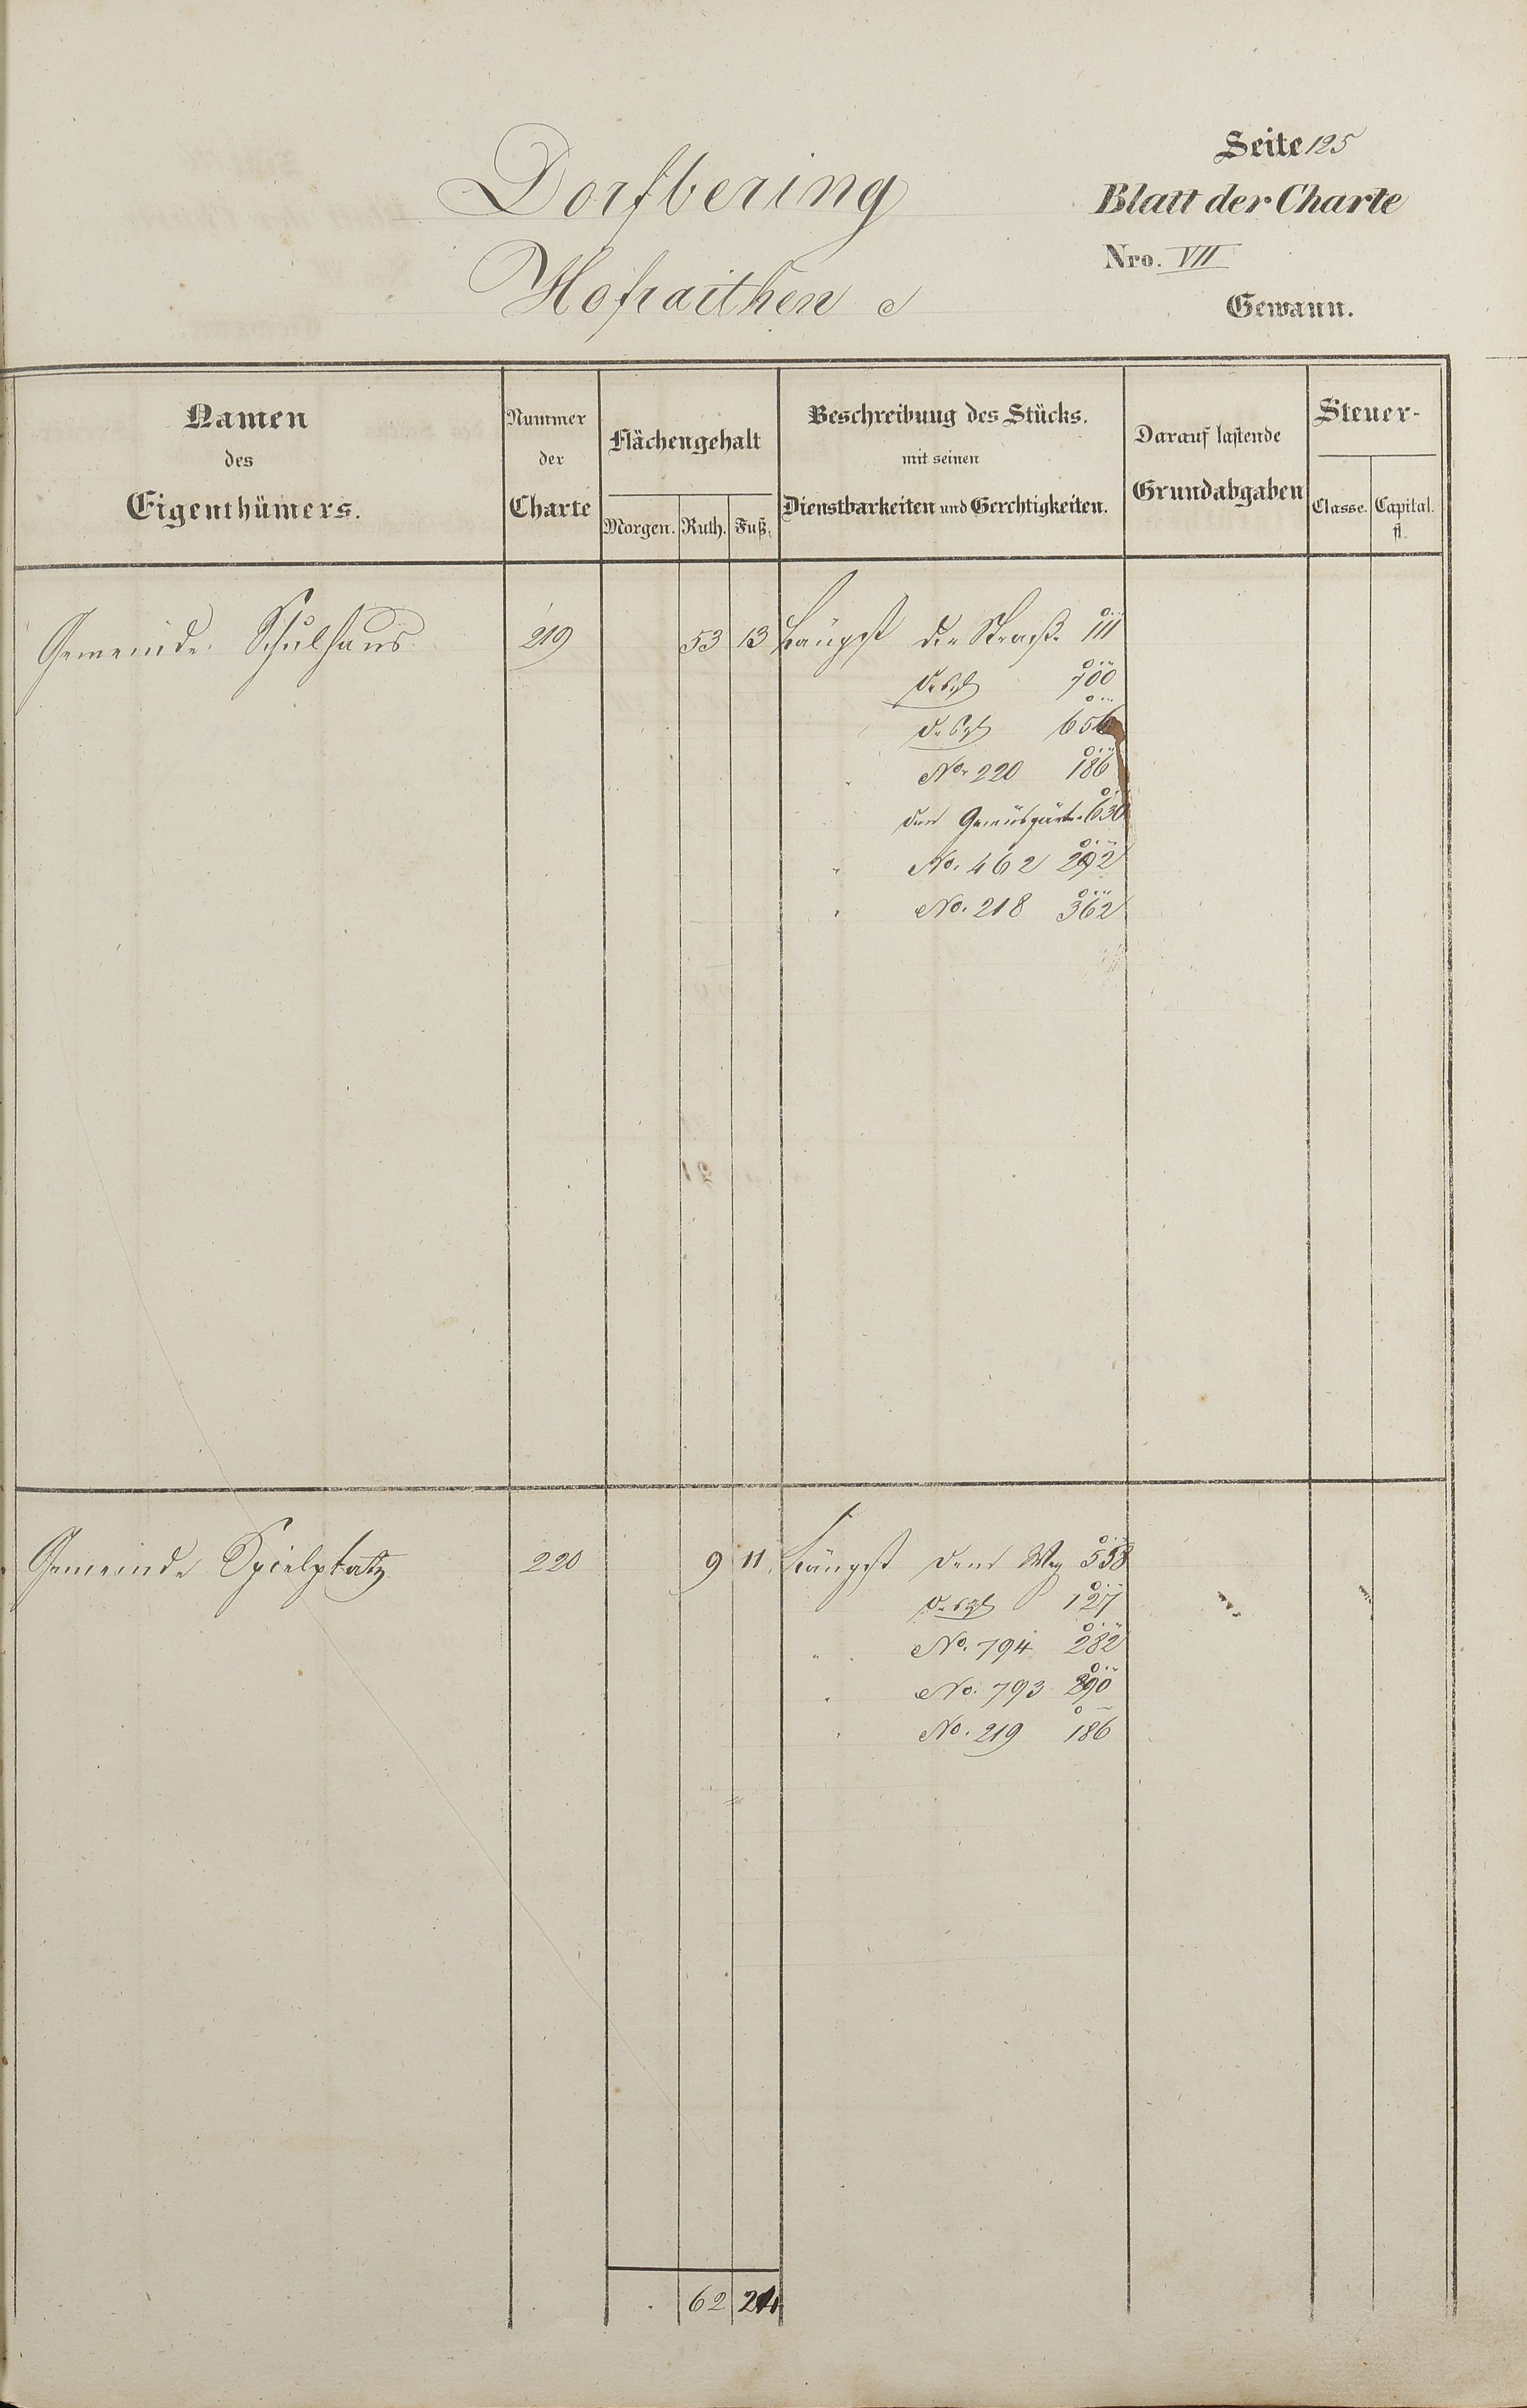 Seite 125
Dorfbering
Blatt der Charte
Nro. VII
Hofraithen
Gewann.
Namen des Eigenthümers.
Nummer der Charte
Flächengehalt
Morgen. Ruth. Fuß.
Beschreibung des Stücks.
mit seinen
Dienstbarkeiten und Gerechtigkeiten.
Darauf lastende
Grundabgaben
Steuer-
Classe. Capital.
fl.
Gemeinde Schulhaus 219 53 13 Längst der Straße 111
desgl 700
desgl 656
No. 220 186
dem 630
" No. 462 292
" No. 218 362
Gemeinde Spielplatz 220 9 11 Längst dem Weg 558
desgl 127
" No. 794 282
" No. 793 290
" No. 219 186
62 24